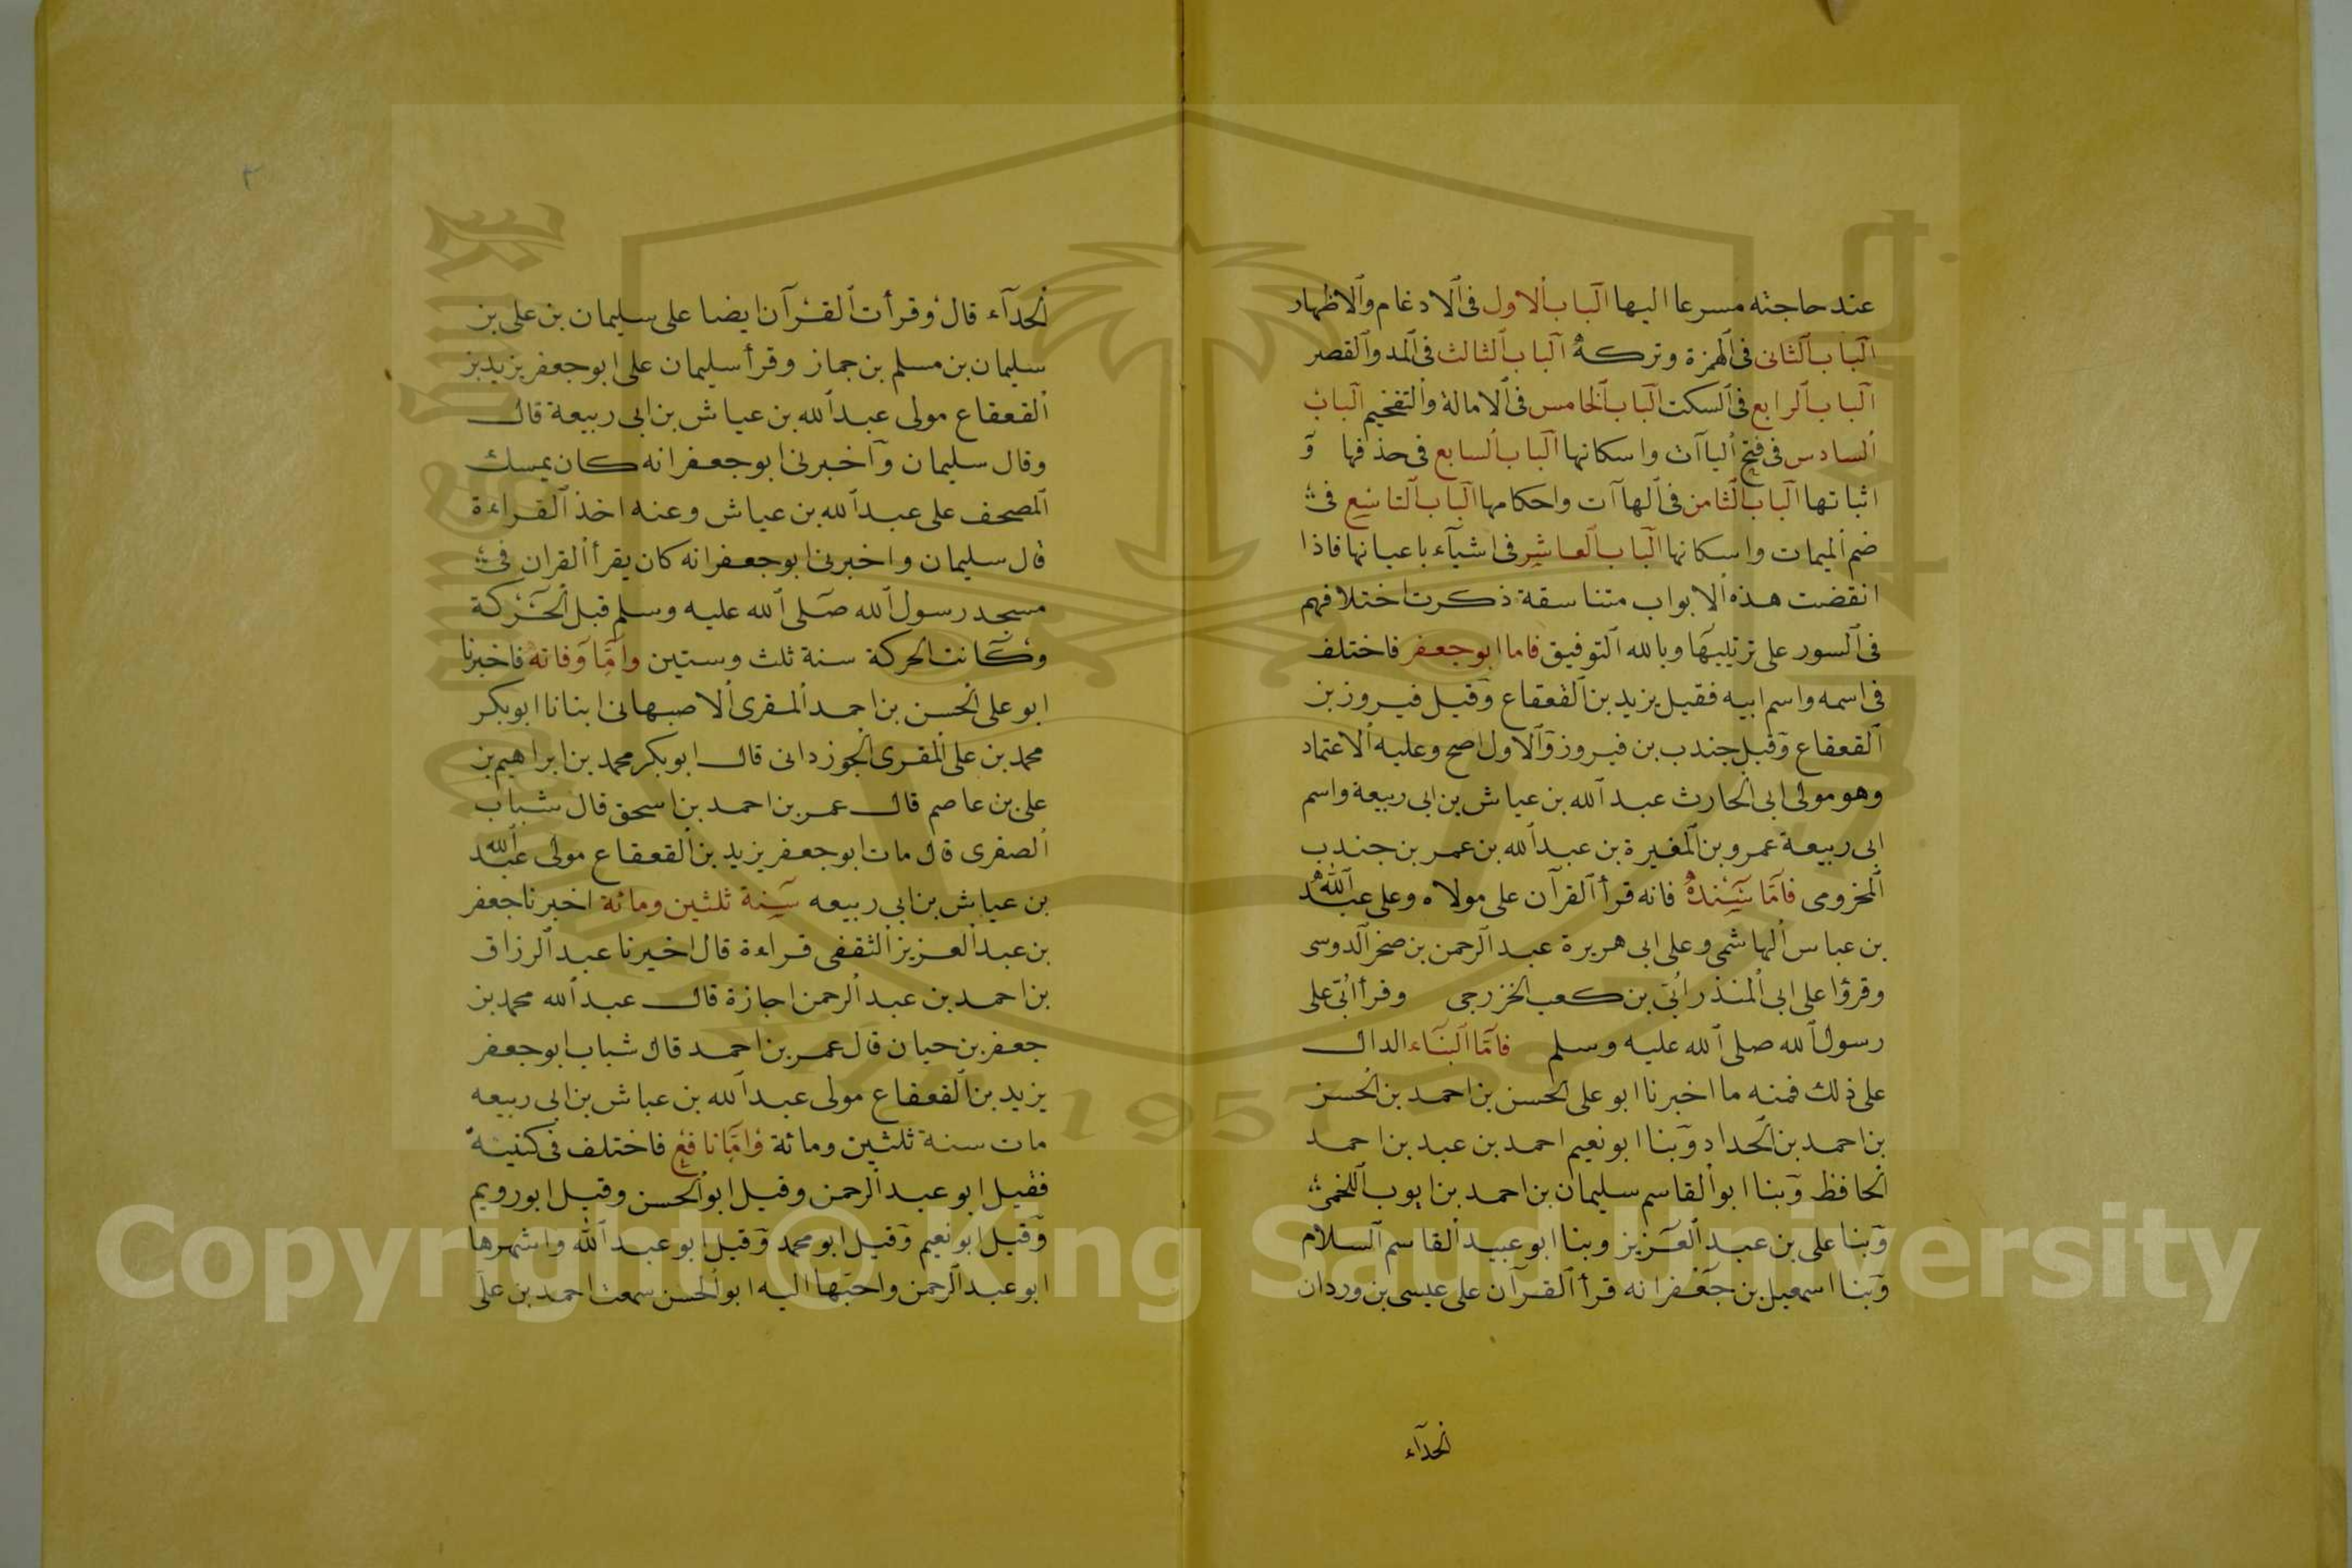 عند حاجته مسرعا اليها الباب الاول فى الادغام والاظهار
الباب الثانى فى الهمزة وتركه الباب الثالث فى المد والقصر
الباب الرابع فى السكت الباب الخامس فى الامالة والتفخيم الباب
السادس فى فتح الياآت واسكانها الباب السابع فى حذفها و
اثباتها الباب الثامن فى الهاآت واحكامها الباب التاسع فى
ضم الميمات واسكانها الباب العاشر فى اشيآء باعيانها فاذا
انقضت هذه الابواب متناسقة ذكرت اختلافهم
فى السور على ترتيبها وبالله التوفيق فاما ابو جعفر فاختلف
فى اسمه واسم ابيه فقيل يزيد بن القعقاع وقيل فيروز بن
القعقاع وقيل جندب بن فيروز والاول اصح وعليه الاعتماد
وهو مولى ابى الحارث عبد الله بن عياش بن ابى ربيعة واسم
ابى ربيعة عمرو بن المغيرة بن عبد الله بن عمر بن جندب
المخزومى فاما سنده فانه قرأ القرآن على مولاه وعلى عبد الله
بن عباس الهاشمى وعلى ابى هريرة عبد الرحمن بن صخر الدوسى
وقرؤا على ابى المنذر ابى بن كعب الخزرجى وقرأ ابى على
رسول الله صلى الله عليه وسلم فاما البناء الدال
على ذلك فمنه ما اخبرنا ابو على الحسن بن احمد بن الحسن
بن احمد بن الحداد وبنا ابو نعيم احمد بن عبد بن احمد
الحافظ وبنا ابو القاسم سليمان بن احمد بن ايوب اللخمى
وبنا على بن عبد العزيز وبنا ابو عبيد القاسم السلام
وبنا اسمعيل بن جعفر انه قرأ القرآن على عيسى بن وردان
الحدآء
الحدآء قال وقرأت القرآن ايضا على سليمان بن على بن
سليمان بن مسلم بن جماز وقرأ سليمان على ابو جعفر يزيد بن
القعقاع مولى عبد الله بن عياش بن ابى ربيعة قال
وقال سليمان واخبرنى ابو جعفر انه كان يمسك
المصحف على عبد الله بن عياش وعنه اخذ القراءة
قال سليمان واخبرنى ابو جعفر انه كان يقرأ القران فى
مسجد رسول الله صلى الله عليه وسلم قبل الحركة
وكانت الحركة سنة ثلث وستين واما وفاته فاخبرنا
ابو على الحسن بن احمد المقرى الاصبهانى ابنانا ابو بكر
محمد بن على المقرى الجوزدانى قال ابو بكر محمد بن ابراهيم بن
على بن عاصم قال عمر بن احمد بن اسحق قال شباب
الصفرى قال مات ابو جعفر يزيد بن القعقاع مولى عبد الله
بن عياش بن ابى ربيعه سنة ثلثين ومائة اخبرنا جعفر
بن عبد العزيز الثقفى قراءة قال اخبرنا عبد الرزاق
بن احمد بن عبد الرحمن اجازة قال عبد الله محمد بن
جعفر بن حيان قال عمر بن احمد قال شباب ابو جعفر
يزيد بن القعقاع مولى عبد الله بن عياش بن ابى ربيعه
مات سنة ثلثين ومائة واما نافع فاختلف فى كنيته
فقيل ابو عبد الرحمن وقيل ابو الحسن وقيل ابو رويم
وقيل ابو نعيم وقيل ابو محمد وقيل ابو عبد الله واشهرها
ابو عبد الرحمن واحبها اليه ابو الحسن سمعت احمد بن على
1957
Copyright © King Saud University